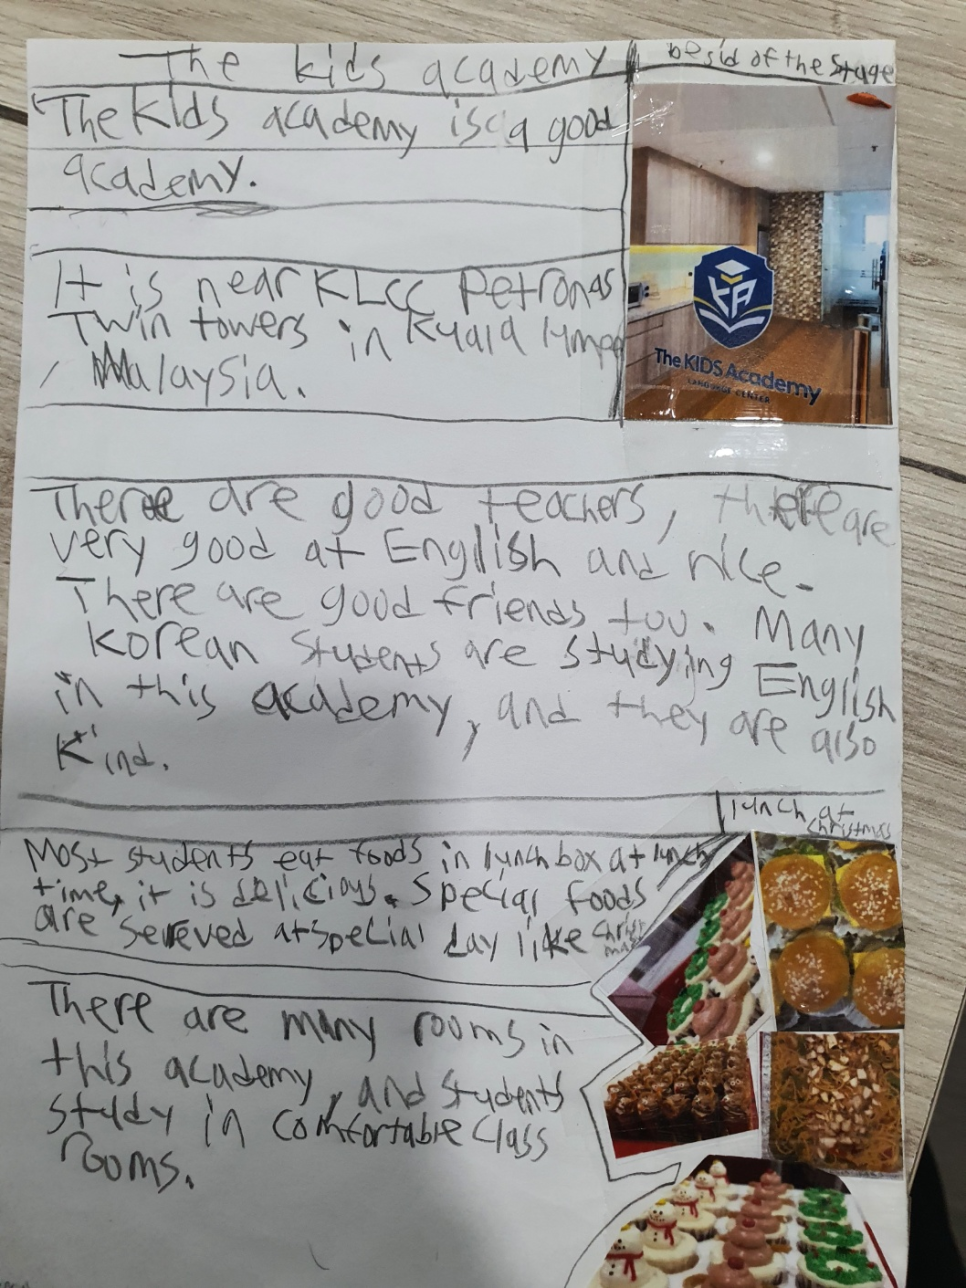 The kids academy
besid of the stage
The kids academy is a good
academy.
It is near KLCC Petronas
Twin towers in Kuala lumpe
, Malaysia.
The KIDS Academy
LANGUAGE CENTER
There are good teachers, there are
very good at English and nice.
There are good friends too. Many
Korean students are studying English
in this academy, and they are also
kind.
lunch at
christmas
Most students eat foods in lunch box at lunch
time, it is delicious. Special foods
are sereved at special day like christ
mas
There are many rooms in
this academy, and students
study in comfortable class
rooms.